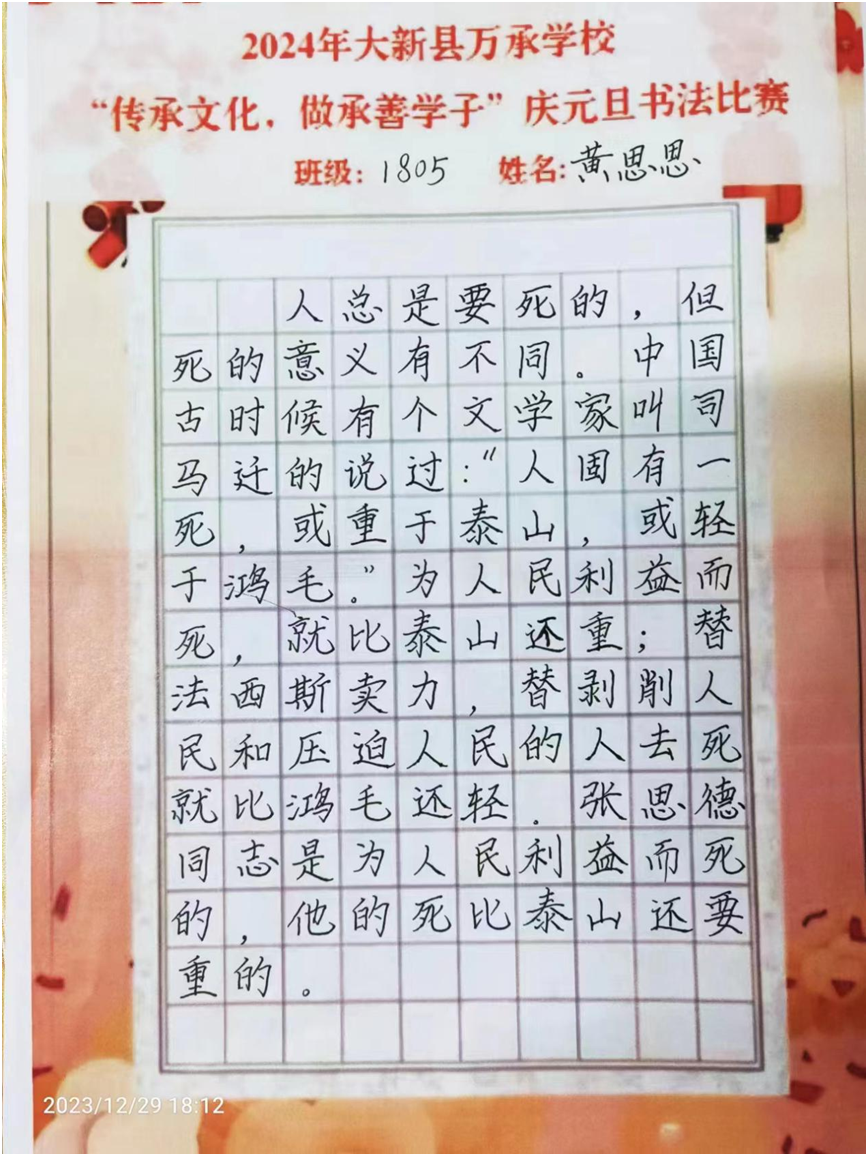 2024年大新县万承学校
“传承文化，做承善学子”庆元旦书法比赛
班级：1805 姓名：黄思思
人总是要死的，但
死的意义有不同。中国
古时候有个文学家叫司
马迁的说过：“人固有一
死，或重于泰山，或轻
于鸿毛。”为人民利益而
死，就比泰山还重；替
法西斯卖力，替剥削人
民和压迫人民的人去死
就比鸿毛还轻．张思德
同志是为人民利益而死
的，他的死比泰山还要
重的。
2023/12/29 18:12